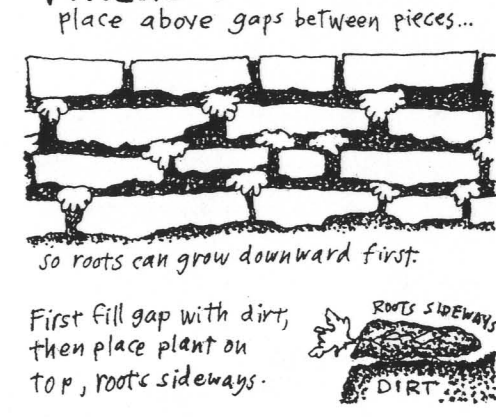 place above gaps between pieces...
so roots can grow downward first.
First fill gap with dirt,
then place plant on
top, roots sideways.
ROOTS SIDEWAYS
DIRT